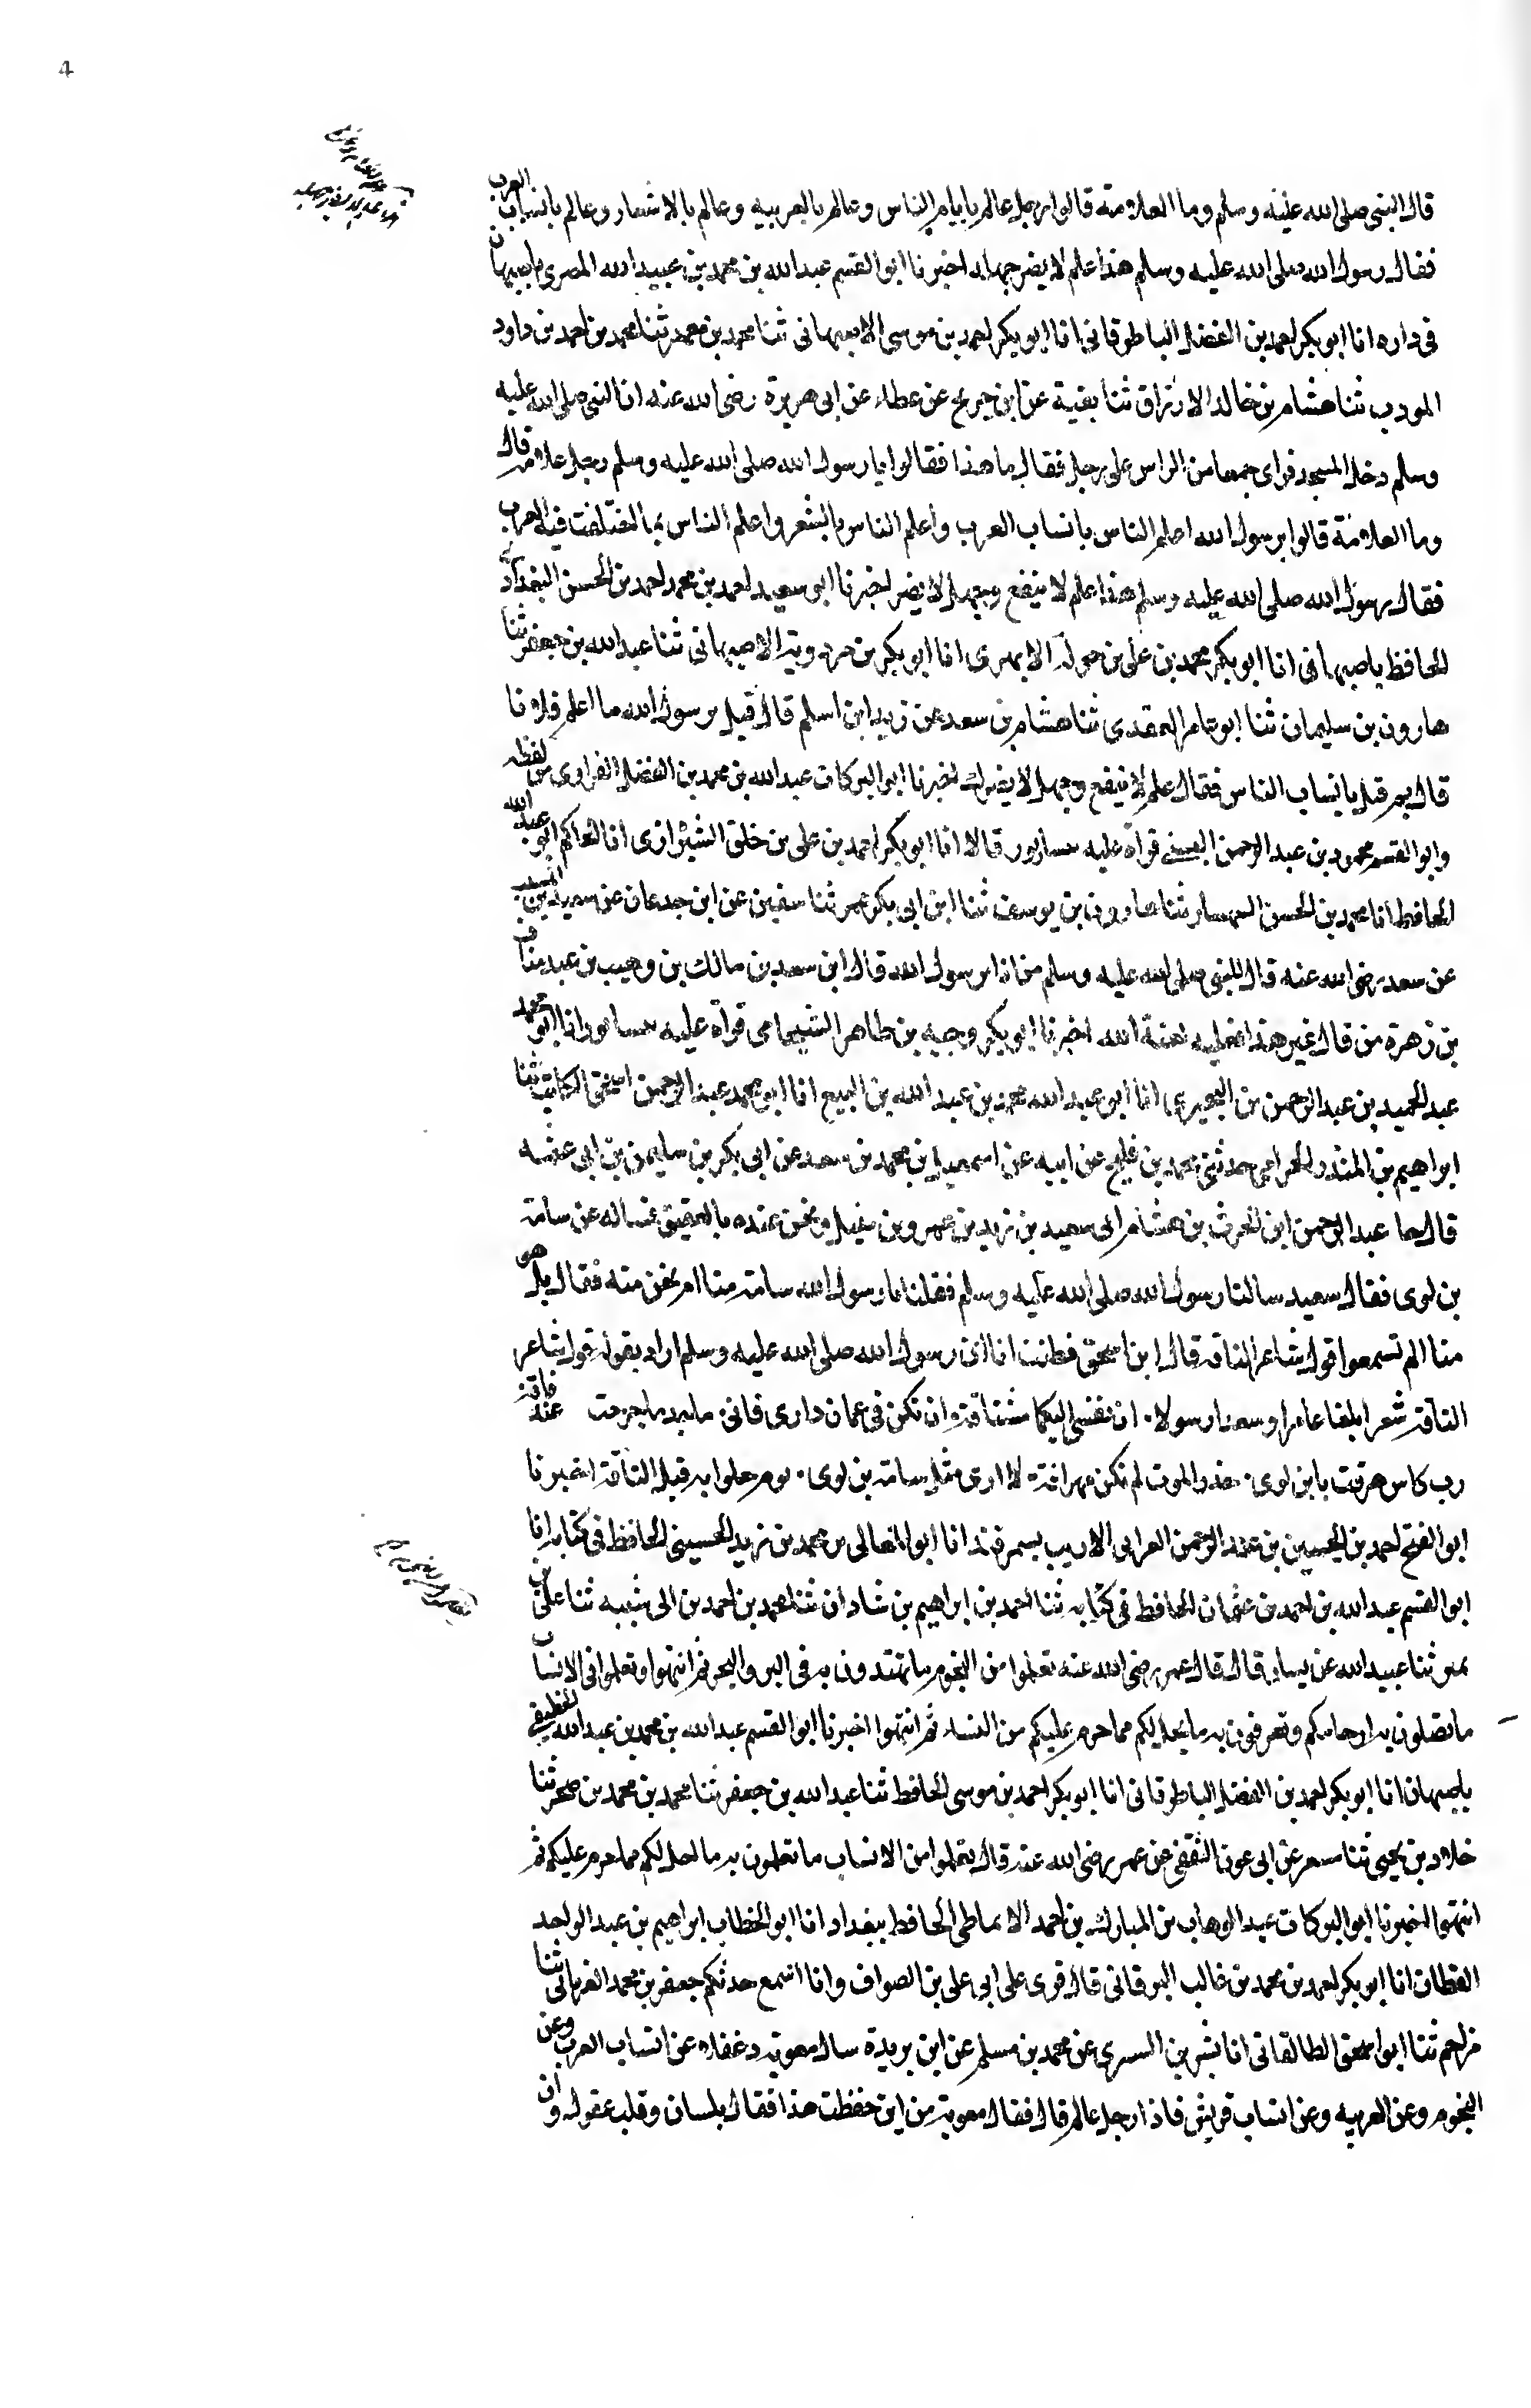 4
قال النبي صلى الله عليه وسلم وما العلامة قالوا رجل عالم بايام الناس وعالم بالعربيه وعالم بالاشعار وعالم بانساب العرب
فقال رسول الله صلى الله عليه وسلم هذا علم لا يضر جهله اخبرنا ابو القسم عبد الله بن محمد بن عبيد الله المصرى باصبهان
فى داره انا ابو بكر احمد بن الفضل الباطرقانى انا ابو بكر احمد بن موسى الاصبهانى ثنا محمد بن معمر ثنا محمد بن احمد بن داود
المودب ثنا هشام بن خالد الازرق ثنا بقية عن ابن جريج عن عطاء عن ابى هريرة رضى الله عنه ان النبى صلى الله عليه
وسلم دخل المسجد فراى جمعا من الراس على رجل فقال ما هذا فقالوا يا رسول الله صلى الله عليه وسلم رجل علامة قال
وما العلامة قالوا برسول الله اعلم الناس بانساب العرب واعلم الناس بالشعر واعلم الناس بما اختلفت فيه العرب
فقال رسول الله صلى الله عليه وسلم هذا علم لا ينفع وجهل لا يضر اخبرنا ابو سعيد احمد بن محمد احمد بن الحسن البغدادى
الحافظ باصبهانى انا ابو بكر محمد بن على بن حولة الابهرى انا ابو بكر بن مردوية الاصبهانى ثنا عبد الله بن جعفر ثنا
هارون بن سليمان ثنا ابو عامر العقدى ثنا هشام بن سعد عن زيد ابن اسلم قال قيل يرسول الله ما اعلم فلانا
قال بم قيل بانساب الناس فقال علم لا ينفع وجهل لا يضرك اخبرنا ابو البركات عبد الله بن محمد بن الفضل الفراوى من لفظه
وابو القسم محمود بن عبد الرحمن قراة عليه قالا انا ابو بكر احمد بن على بن خلف الشيرازى انا الحاكم ابو عبد الله
الحافظ انا محمد بن الحسن ثنا هارون بن يوسف ثنا ابن ابى بكر عمر ثنا سفين عن ابن جدعان عن سعيد بن المسيب
عن سعد رضى الله عنه قال للنبى صلى الله عليه وسلم من انا يرسول الله قال ابن سعد بن مالك بن وهيب بن عبد مناف
بن زهرة من قال غير هذا فعليه لعنة الله اخبرنا ابو بكر وجيه بن طاهر الشيحامى قراة عليه انا ابو محمد
عبد الحميد بن عبد الرحمن بن البحيرى انا ابو عبد الله محمد بن عبد الله بن البيع انا ابو محمد عبد الرحمن اسحق الكاتب ثنا
ابراهيم بن المنذر الحزامى حدثنى محمد بن فليح عن ابيه عن اسمعيل بن محمد بن سعد عن ابى بكر بن سليمن بن ابى
قال جا عبد الرحمن ابن الحرث بن هشام الى سعيد بن زيد بن عمرو بن نفيل ونحن عنده بالعقيق فساله عن سامة
بن لوى فقال سعيد سالنا رسول الله صلى الله عليه وسلم فقلنا يا رسول الله سامة منا ام نحن منه فقال بل هو
منا الم تسمعوا قول شاعر الناقة قال ابن اسحق فظننت انا ان رسول الله صلى الله عليه وسلم اراد بقوله قول شاعر
الناقة شعر ابلغا عامرا وسعدا رسولا. ان نفسى اليكما مشتاقة وان تكن فى عمان دارى فانى. خرجت عنه فاقة
رب كاس هرقت يا ابن لوى. حذر الموت لم تكن مهراقة. لا ارى مثل سامة بن لوى. يوم حلوا به قبل الناقة اخبرنا
ابو الفتح احمد بن الحسين بن عبد الرحمن الاديب بسمرقند انا ابو المعالى بن محمد بن زيد الحسينى الحافظ فى كتابه انا
ابو القسم عبد الله بن احمد بن عثمان الحافظ فى كتابه ثنا احمد بن ابراهيم بن شاذان ثنا محمد بن احمد بن ابى شيبه ثنا على بن
ثنا عبيد الله عن يسار قال قال عمر رضى الله عنه تعلموا من النجوم ما تهتدون به فى البر والبحر ثم انتهوا وتعلموا فى الانساب
ما تصلون به ارحامكم وتعرفون به ما يحل لكم مما حرم عليكم من النساء ثم انتهوا اخبرنا ابو القسم عبد الله بن محمد بن عبد الله
باصبهان انا ابو بكر احمد بن الفضل الباطرقانى انا ابو بكر احمد بن موسى الحافظ ثنا عبد الله بن جعفر ثنا محمد بن محمد بن صخر ثنا
خلاد بن يحيى ثنا مسعر عن ابى عون الثقفى عن عمر رضى الله عنه قال تعلموا من الانساب ما تعلمون به ما احل لكم مما حرم عليكم ثم
انتهوا اخبرنا ابو البركات عبد الوهاب بن المبارك بن احمد الانماطى الحافظ ببغداد انا ابو الخطاب ابراهيم بن عبد الواحد
القطان انا ابو بكر احمد بن محمد بن غالب البرقانى قال قرى على ابى على بن الصواف وانا اسمع حدثكم جعفر بن محمد الفريابى ثنا
مزاحم ثنا ابو اسحق الطالقانى انا بشر بن السرى عن محمد بن مسلم عن ابن بريدة سال معوية دغفلا عن انساب العرب وعن
النجوم وعن العربيه وعن انساب قريش فاذا رجل عالم قال فقال معوية من اين حفظت هذا فقال بلسان وقلب عقول وان